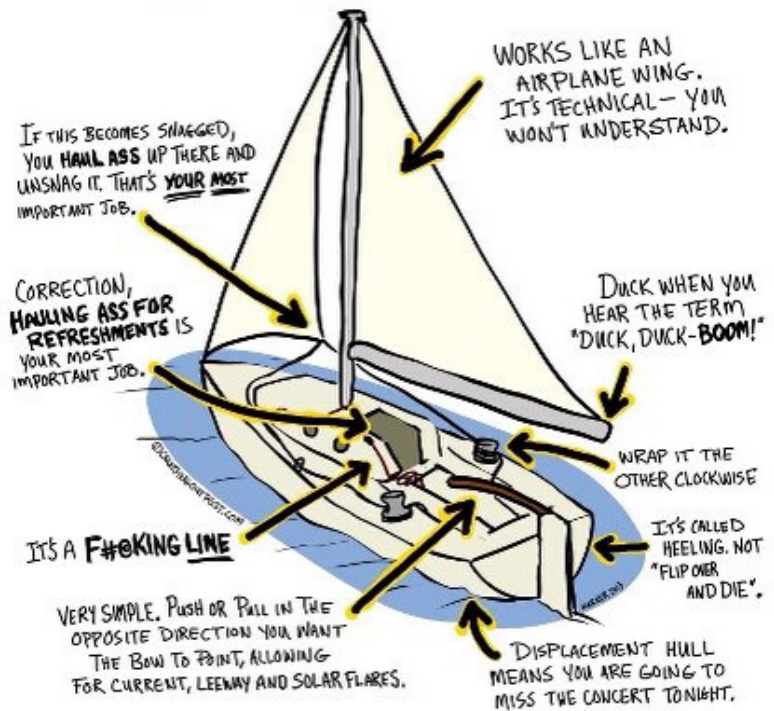 WORKS LIKE AN
AIRPLANE WING.
IT'S TECHNICAL — YOU
WON'T UNDERSTAND.
IF THIS BECOMES SNAGGED,
YOU HAUL ASS UP THERE AND
UNSNAG IT. THAT'S YOUR MOST
IMPORTANT JOB.
CORRECTION,
HAULING ASS FOR
REFRESHMENTS IS
YOUR MOST
IMPORTANT JOB.
DUCK WHEN YOU
HEAR THE TERM
"DUCK, DUCK-BOOM!"
WRAP IT THE
OTHER CLOCKWISE
IT'S A F#@KING LINE
IT'S CALLED
HEELING. NOT
"FLIP OVER
AND DIE".
VERY SIMPLE. PUSH OR PULL IN THE
OPPOSITE DIRECTION YOU WANT
THE BOW TO POINT, ALLOWING
FOR CURRENT, LEEWAY AND SOLAR FLARES.
DISPLACEMENT HULL
MEANS YOU ARE GOING TO
MISS THE CONCERT TONIGHT.